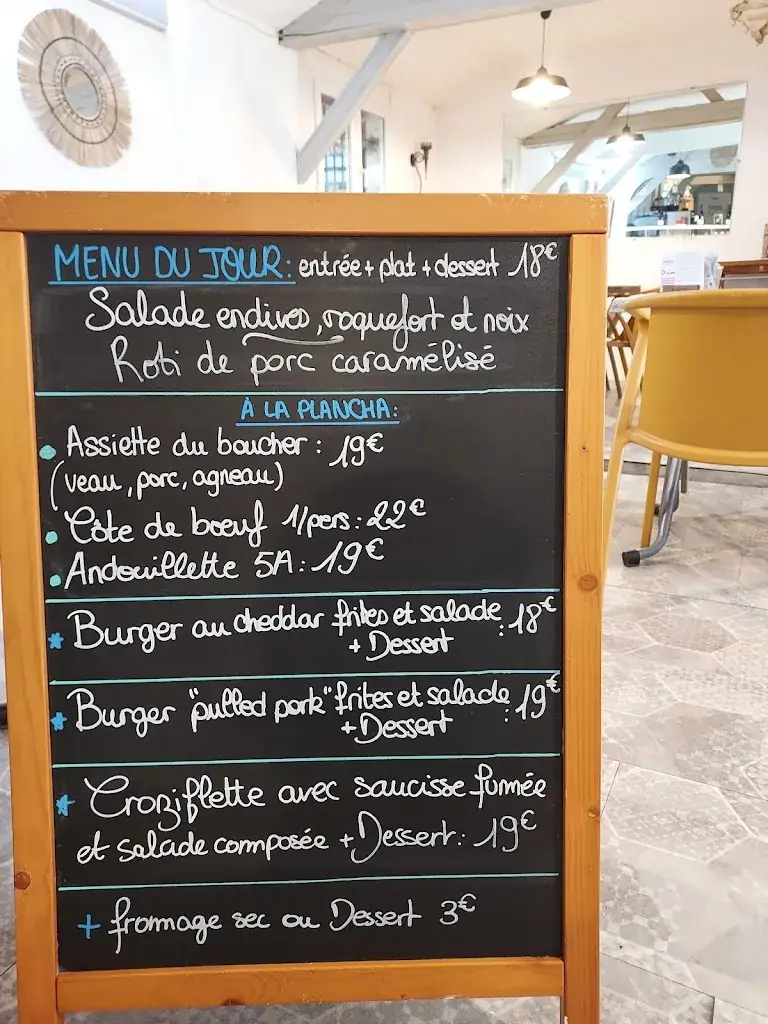 MENU DU JOUR: entrée + plat + dessert 18€
Salade endives, roquefort et noix
Roti de porc caramélisé
À LA PLANCHA:
Assiette du boucher : 19€
(veau, porc, agneau)
Côte de boeuf 1/pers: 22€
Andouillette 5A: 19€
Burger au cheddar frites et salade : 18€
+ Dessert
Burger "pulled pork" frites et salade : 19€
+ Dessert
Croziflette avec saucisse fumée
et salade composée + Dessert: 19€
+ fromage sec ou Dessert 3€